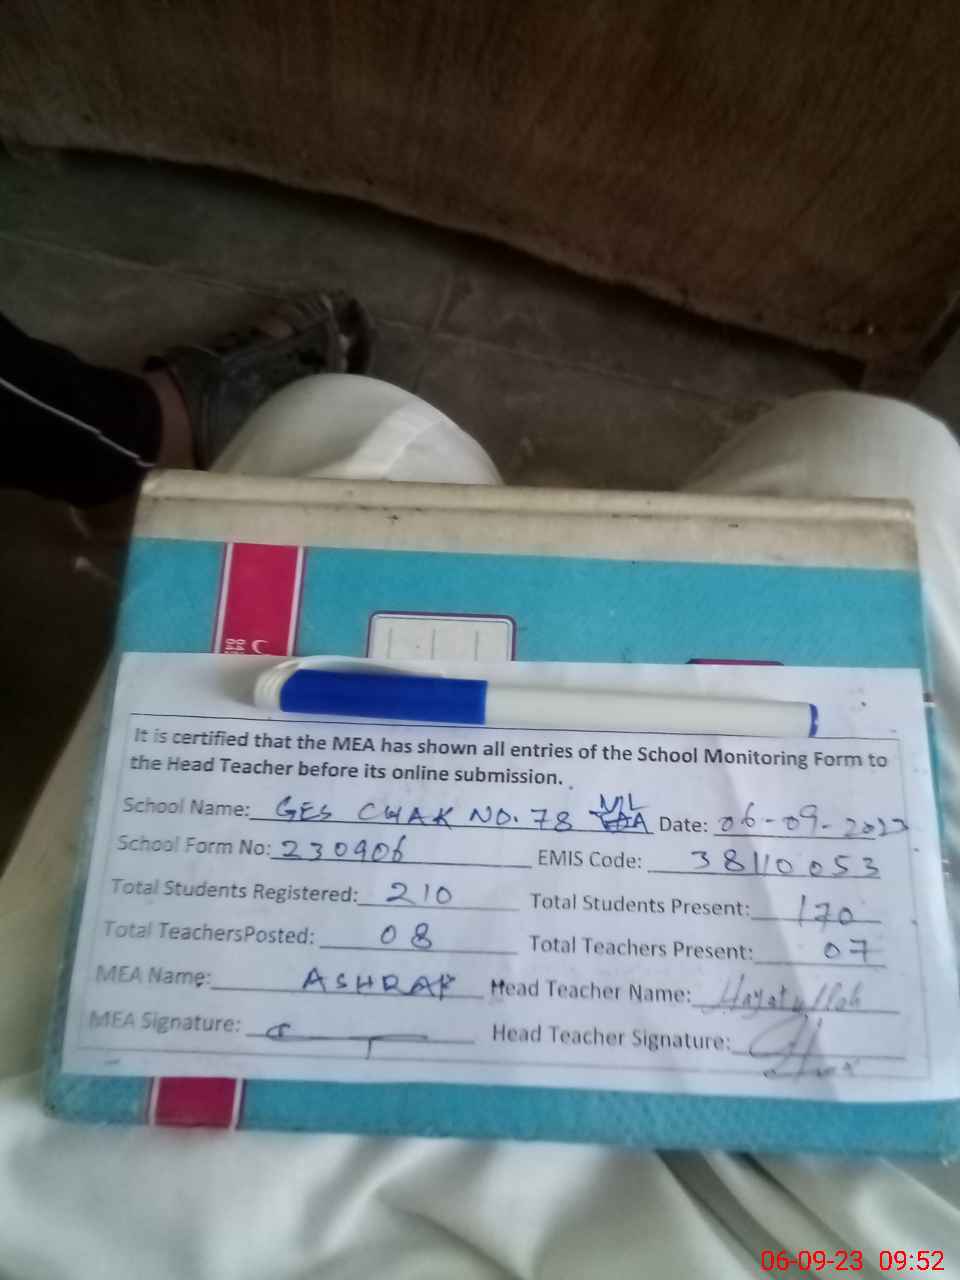 It is certified that the MEA has shown all entries of the School Monitoring Form to
the Head Teacher before its online submission.
School Name: GES CHAK NO. 78 M/L Date: 06-09-2023
School Form No: 230906 EMIS Code: 38110053
Total Students Registered: 210 Total Students Present: 170
Total TeachersPosted: 08 Total Teachers Present: 07
MEA Name: ASHRAF Head Teacher Name: Hayatullah
MEA Signature: Head Teacher Signature:
06-09-23 09:52